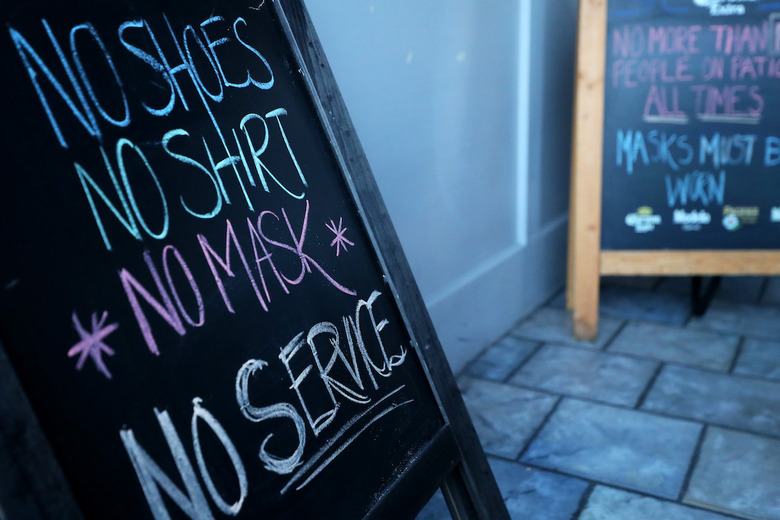 NO SHOES
NO SHIRT
*NO MASK*
NO SERVICE
NO MORE THAN
PEOPLE ON
ALL TIMES
MASKS MUST
WORN